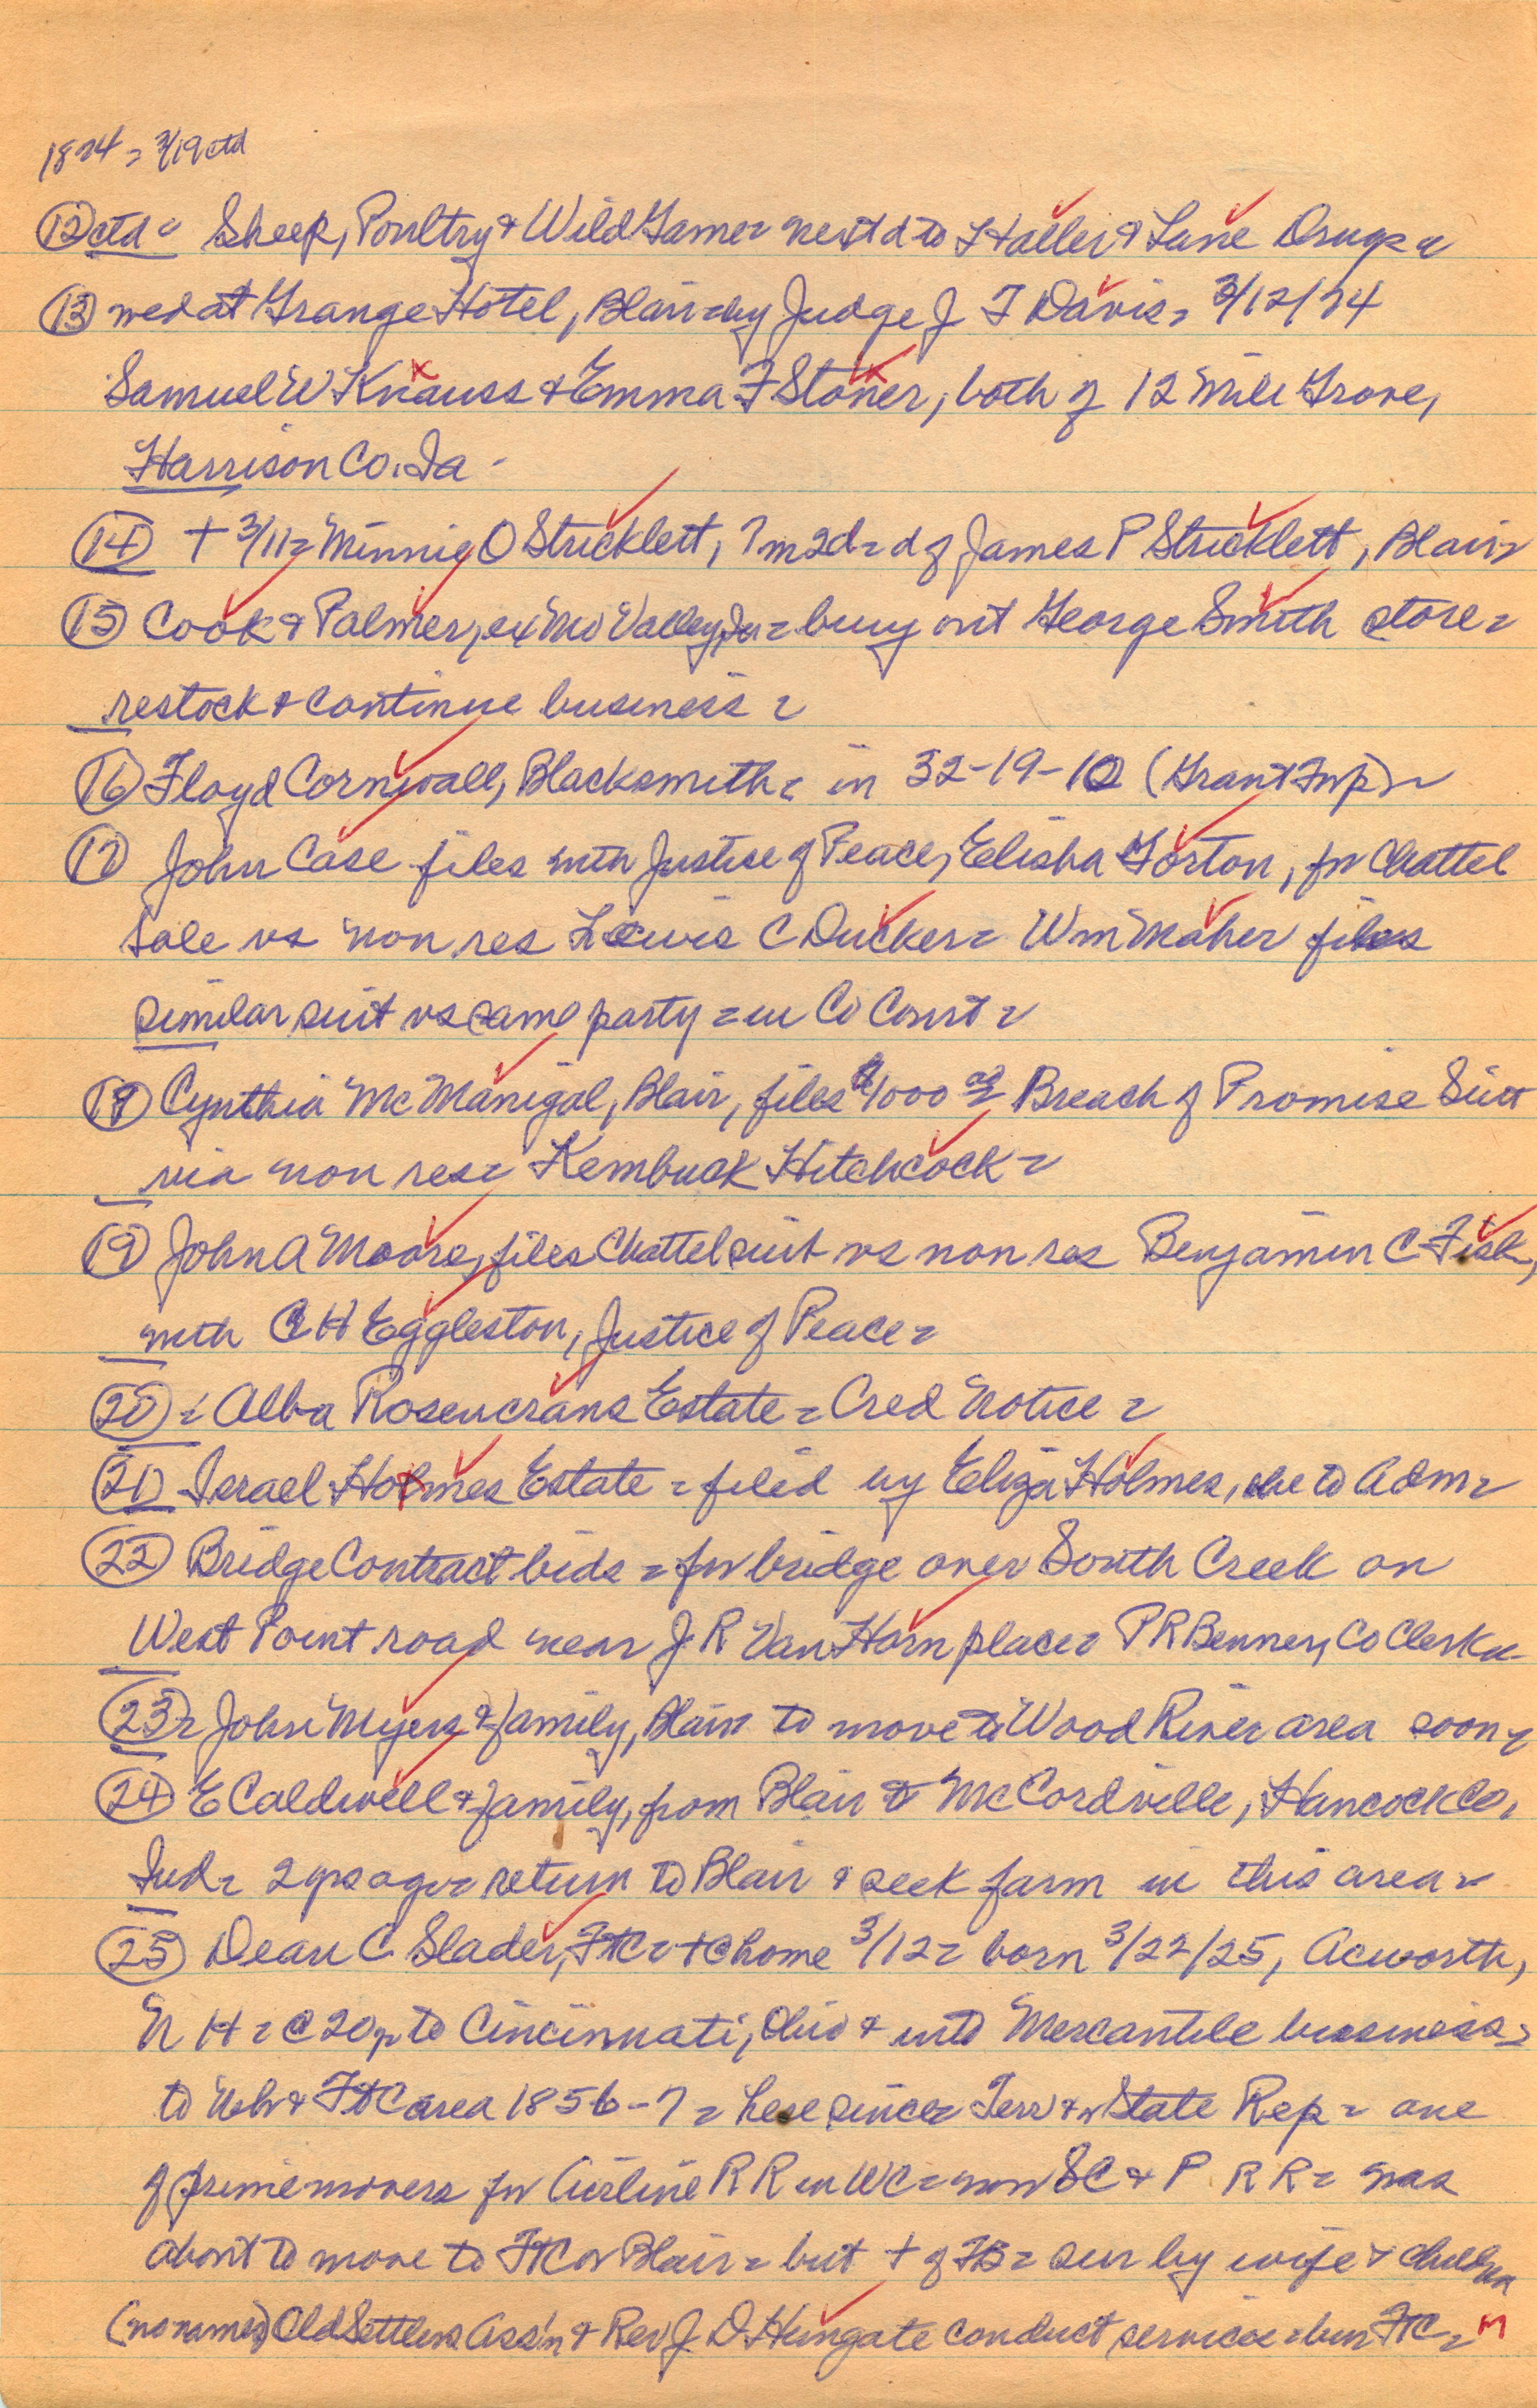 1874 = 3/19 ctd
(12) ctd = Sheep, Poultry & Wild Game = next d to Haller & Lane Drugs =
(13) wed at Grange Hotel, Blair = by Judge J F Davis = 3/12/74
Samuel W Knauss & Emma F Stoner, both of 12 Mile Grove,
Harrison Co. Ia -
(14) + 3/11 = Minnie O Stricklett, 7m2d = d of James P Stricklett, Blair =
(15) Cook & Palmer, ex Mo Valley, Ia = buy out George Smith store =
restock & continue business =
(16) Floyd Cornwall, Blacksmith = in 32-19-10 (Grant Twp) =
(17) John Case files with Justice of Peace, Elisha Gorton, for Chattel
Sale vs non res Lewis C Ducker = Wm Maher files
similar suit vs same party = in Co Court =
(18) Cynthia McManigal, Blair, files $1000 00 Breach of Promise Suit
via non res = Kembuck Hitchcock =
(19) John A Moore, files Chattel suit vs non res Benjamin C Fish,
with C H Eggleston, Justice of Peace =
(20) = Alba Rosencrans Estate = Cred Notice =
(21) Israel Holmes Estate = filed by Eliza Holmes, she to Adm =
(22) Bridge Contract bids = for bridge over South Creek on
West Point road near J R Van Horn place = P R Benner, Co Clerk =
(23) = John Myers & family, Blair = to move to Wood River area soon =
(24) E Caldwell & family, from Blair to McCordville, Hancock Co,
Ind = 2 yrs ago = return to Blair & seek farm in this area =
(25) Dean C Slader, FtC = + @ home 3/12 = born 3/22/25, Acworth,
N H = @ 20 yr to Cincinnati, Ohio & into Mercantile business =
to Neb & FtC area 1856-7 = here since = Terr & State Rep = one
of prime movers for Airline R R in WC = now SC & P R R = was
about to move to FtC or Blair = but + of = sur by wife & children
(no names) Old Settlers Ass'n & Rev J D Hungate conduct service = bur FtC = M